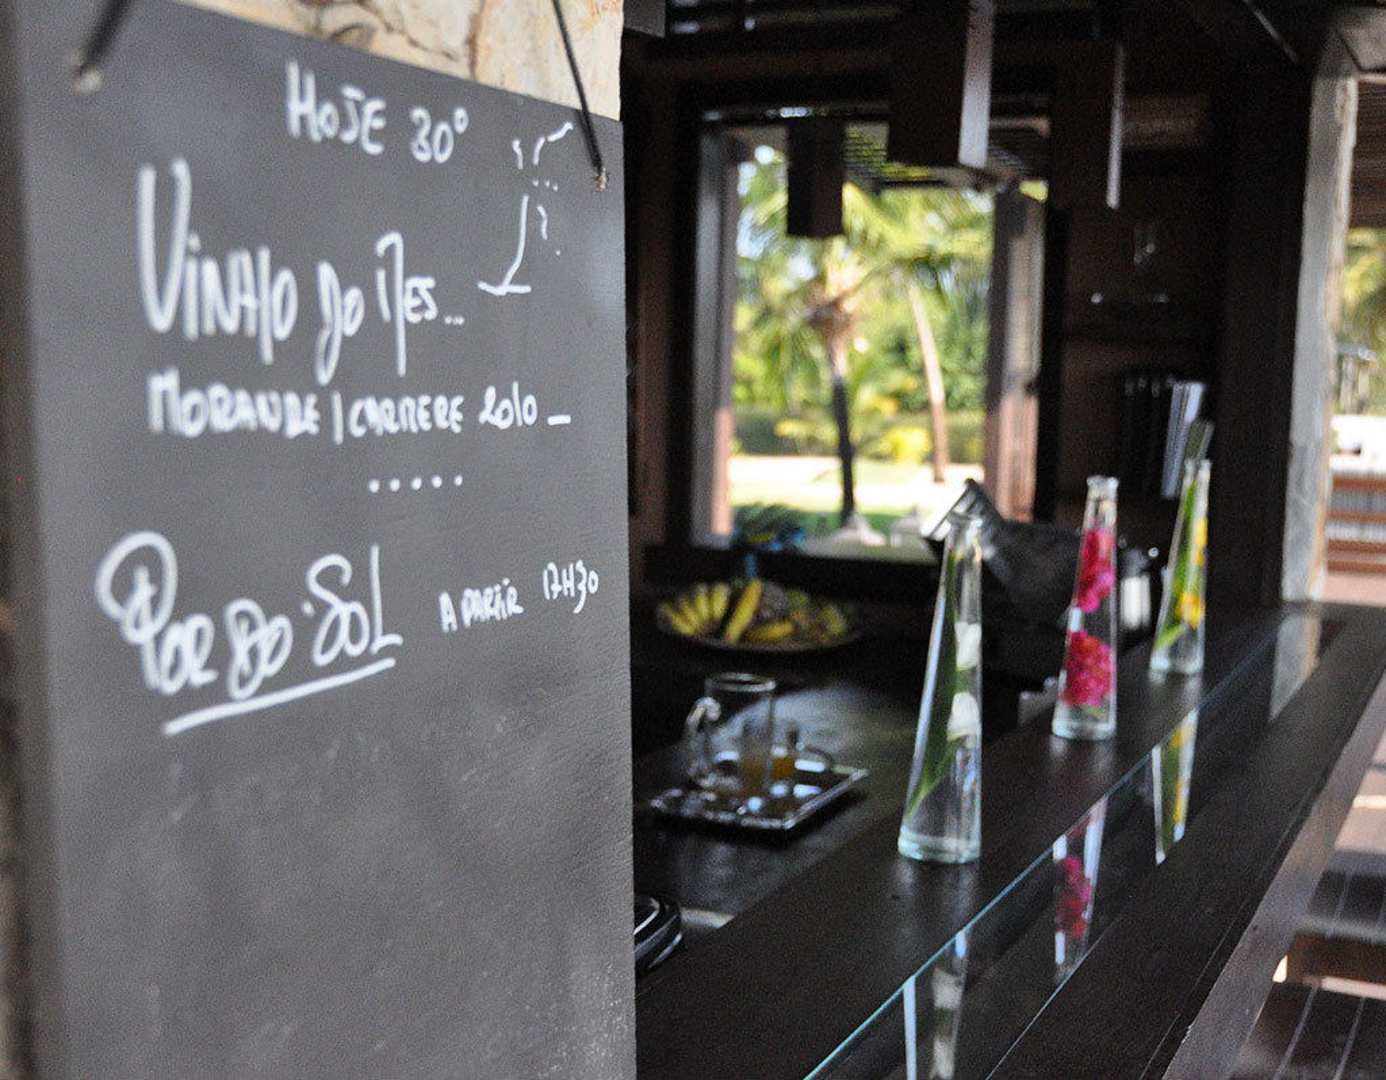 HOJE 30°
VINHO DO MES...
MORANDE | CARRERE 2010 –
.....
POR DO SOL A PARTIR 17H30